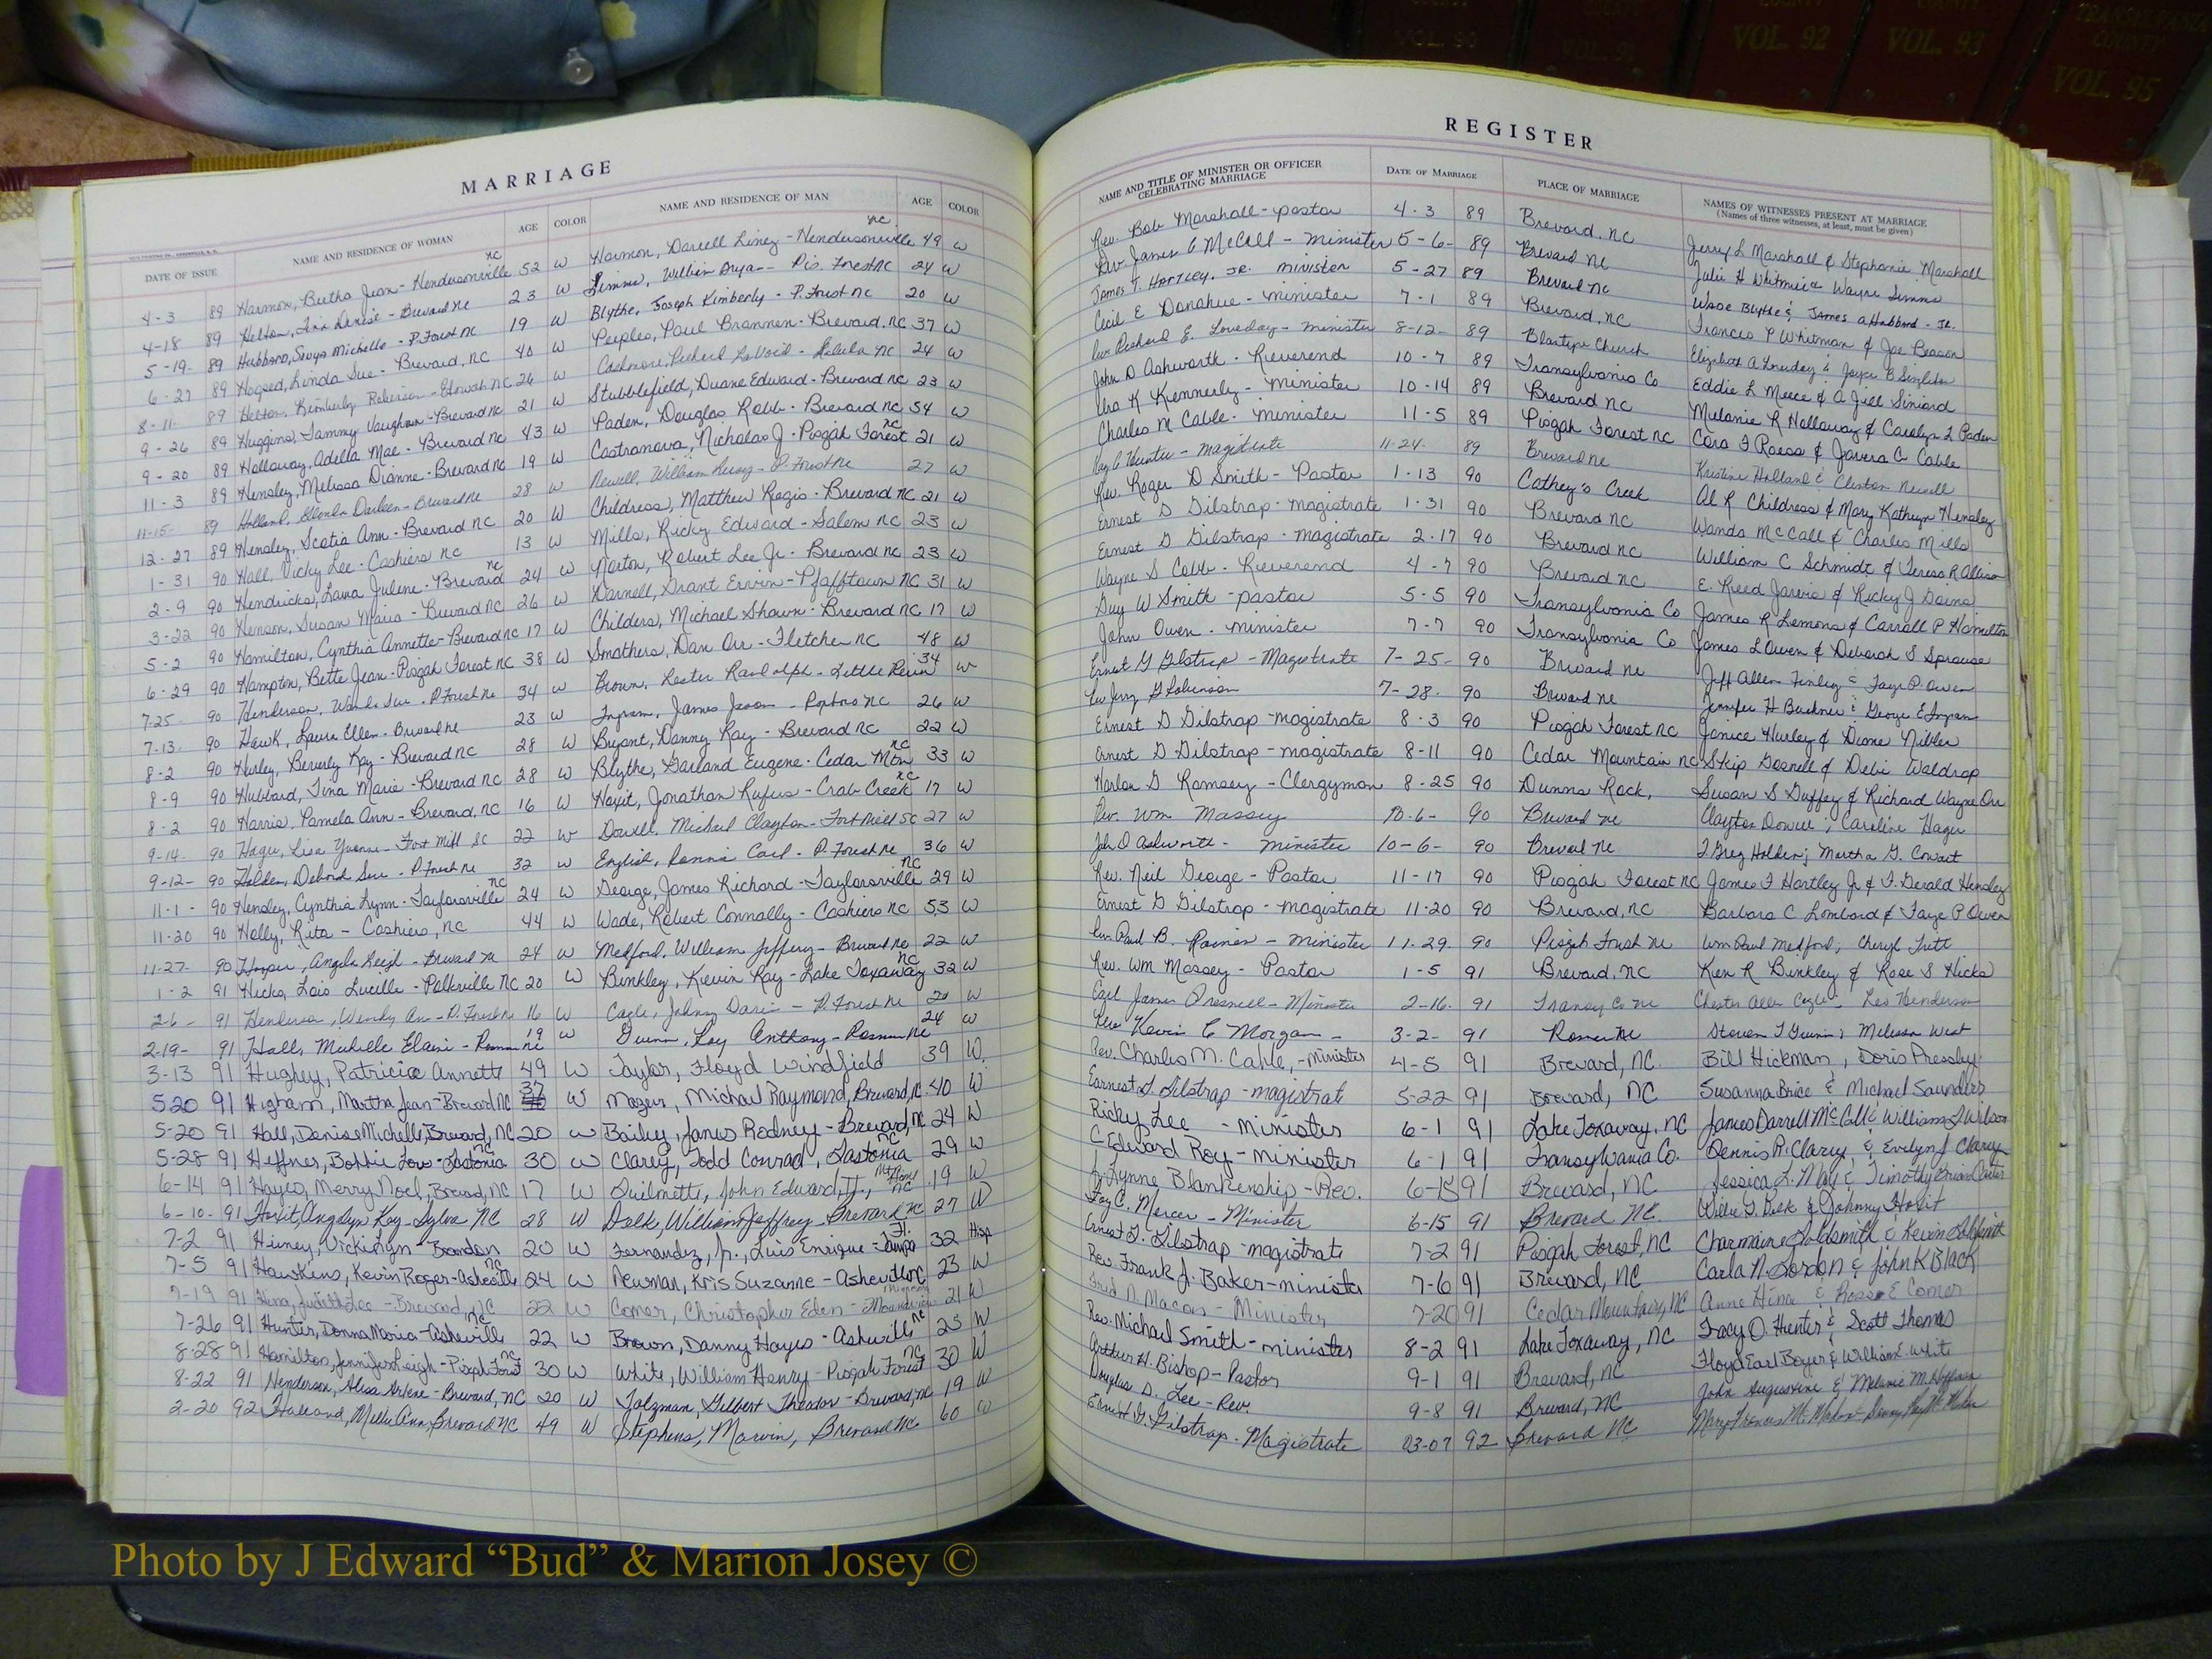 VOL. 90
VOL. 92
COUNTY
VOL. 93
TRANSYLVANIA
COUNTY
VOL. 95
MARRIAGE
DATE OF ISSUE NAME AND RESIDENCE OF WOMAN AGE COLOR NAME AND RESIDENCE OF MAN AGE COLOR
4-3 89 Harmon, Bertha Jean - Hendersonville NC 52 W Harmon, Darrell Liney - Hendersonville NC 49 W
4-18 89 Helton, Ann Denise - Brevard NC 23 W Simms, William Bryan - Pis. Forest NC 24 W
5-19- 89 Hubbard, Sonya Michelle - P. Forest NC 19 W Blythe, Joseph Kimberly - P. Forest NC 20 W
6-27 89 Hogsed, Linda Sue - Brevard, NC 40 W Peeples, Paul Brannen - Brevard, NC 37 W
8-11- 89 Helton, Kimberly - Etowah NC 26 W NC 24 W
9-26 89 Huggins, Tammy Vaughan - Brevard NC 21 W Stubblefield, Duane Edward - Brevard NC 23 W
9-20 89 Holloway, Adella Mae - Brevard NC 43 W Paden, Douglas Robb - Brevard NC 54 W
11-3 89 Hensley, Melissa Dianne - Brevard NC 19 W Castranova, Nicholas J - Pisgah Forest NC 21 W
11-15- 89 Holland, Darleen - Brevard NC 28 W Newell, William - P. Forest NC 27 W
12-27 89 Hensley, Scotia Ann - Brevard NC 20 W Childress, Matthew Regis - Brevard NC 21 W
1-31 90 Hall, Vicky Lee - Cashiers NC 13 W Mills, Ricky Edward - Salem NC 23 W
2-9 90 Hendricks, Lana Julene - Brevard NC 24 W Norton, Robert Lee Jr. - Brevard NC 23 W
3-22 90 Henson, Susan Maria - Brevard NC 26 W Darnell, Grant Ervin - Pfafftown NC 31 W
5-2 90 Hamilton, Cynthia Annette - Brevard NC 17 W Childers, Michael Shawn - Brevard NC 17 W
6-29 90 Hampton, Bette Jean - Pisgah Forest NC 38 W Smathers, Dan Orr - Fletcher NC 48 W
7-25- 90 Henderson, Wanda Sue - P. Forest NC 34 W Brown, Lester Randolph - Little River 34 W
7-13- 90 Hawk, Laura Ellen - Brevard NC 23 W Ingram, James Jason - NC 26 W
8-2 90 Hurley, Beverly Kay - Brevard NC 28 W Bryant, Danny Ray - Brevard NC 22 W
8-9 90 Hubbard, Tina Marie - Brevard NC 28 W Blythe, Garland Eugene - Cedar Mtn NC 33 W
8-2 90 Harris, Pamela Ann - Brevard, NC 16 W Hoxit, Jonathan Rufus - Crab Creek NC 17 W
9-14- 90 Hague, Lisa Yvonne - Fort Mill SC 22 W Dowell, Michael Clayton - Fort Mill SC 27 W
9-12- 90 Holden, Deborah Sue - P. Forest NC 32 W English, Ronnie Carl - P. Forest NC 36 W
11-1- 90 Hensley, Cynthia Lynn - Taylorsville NC 24 W George, James Richard - Taylorsville NC 29 W
11-20 90 Holly, Rita - Cashiers, NC 44 W Wade, Robert Connally - Cashiers NC 53 W
11-27- 90 Hooper, Angela Leigh - Brevard NC 24 W Medford, William Jeffery - Brevard NC 22 W
1-2 91 Hicks, Lois Lucille - Polkville NC 20 W Binkley, Kevin Ray - Lake Toxaway NC 32 W
2-6- 91 Henderson, Wendy Ann - P. Forest NC 16 W Cagle, Johnny Darin - P. Forest NC 20 W
2-19- 91 Hall, Michelle Elaine - Rosman NC 19 W Guinn, Loy Anthony - Rosman NC 24 W
3-13 91 Hughey, Patricia Annette 49 W Taylor, Floyd Windfield 39 W
5-20 91 Higham, Martha Jean - Brevard NC 37 W Mazur, Michael Raymond, Brevard, NC 40 W
5-20 91 Hall, Denise Michelle, Brevard, NC 20 W Bailey, James Rodney - Brevard, NC 24 W
5-28 91 Heffner, Bobbie Low - Gastonia NC 30 W Clary, Todd Conrad, Gastonia NC 29 W
6-14 91 Hayes, Merry Noel, Brevard, NC 17 W Guilmette, John Edward, Jr., NC 19 W
6-10- 91 Hoxit, Angelyn Kay - Sylva NC 28 W Dalk, William Jeffrey - Brevard NC 27 W
7-2 91 Hiney, Vicki Lyn - Brandon 20 W Fernandez, Jr., Luis Enrique - Tampa Fl. 32 Hisp
7-5 91 Hawkins, Kevin Roger - Asheville NC 24 W Newman, Kris Suzanne - Asheville NC 23 W
7-19 91 Hina, Judith Lee - Brevard, NC 22 W Comer, Christopher Eden - 21 W
7-26 91 Hunter, Donna Maria - Asheville NC 22 W Brown, Danny Hayes - Asheville NC 25 W
8-28 91 Hamilton, Jennifer Leigh - Pisgah Forest NC 30 W White, William Henry - Pisgah Forest NC 30 W
8-22 91 Henderson, Alisa Arlene - Brevard, NC 20 W Tolzman, Gilbert Theodor - Brevard, NC 19 W
2-20 92 Holland, Ann, Brevard NC 49 W Stephens, Marvin, Brevard NC 60 W
REGISTER
NAME AND TITLE OF MINISTER OR OFFICER CELEBRATING MARRIAGE DATE OF MARRIAGE PLACE OF MARRIAGE NAMES OF WITNESSES PRESENT AT MARRIAGE
(Names of three witnesses, at least, must be given)
Rev. Bob Marshall - pastor 4-3 89 Brevard, NC Jerry L Marshall & Stephanie Marshall
Rev. James C McCall - minister 5-6- 89 Brevard NC Julie H Whitmire & Wayne Simms
James T. Hartley, Jr. minister 5-27 89 Brevard NC Wade Blythe & James A Hubbard - Jr.
Cecil E Donahue - minister 7-1 89 Brevard, NC Frances P Whitman & Joe Beacon
Rev Richard E. Loveday - minister 8-12- 89 Church Elizabeth A Loveday & Joyce B Singleton
John D Ashworth - Reverend 10-7 89 Transylvania Co Eddie L Meece & A Jill Siniard
Ira K Kennerly - minister 10-14 89 Brevard NC Melanie R Hollaway & Carolyn L Paden
Charles M Cable - minister 11-5 89 Pisgah Forest NC Cara F Roess & Javera C Cable
magistrate 11-24- 89 Brevard NC Kristine Holland & Clinton Newell
Rev. Roger D Smith - Pastor 1-13 90 Cathey's Creek Al R Childress & Mary Kathryn Hensley
Ernest G Gilstrap - magistrate 1-31 90 Brevard NC Wanda McCall & Charles Mills
Ernest G Gilstrap - magistrate 2-17 90 Brevard NC William C Schmidt & Teresa R Allison
Wayne S Cobb - Reverend 4-7 90 Brevard NC E. Reed Jarvis & Ricky J Goins
Guy W Smith - pastor 5-5 90 Transylvania Co James R Lemons & Carroll P Hamilton
John Owen - minister 7-7 90 Transylvania Co James L Owen & Deborah S Sprouse
Ernest G Gilstrap - Magistrate 7-25- 90 Brevard NC Jeff Allen Finley & Faye P. Owen
Rev Jerry G Robinson 7-28- 90 Brevard NC Jennifer H Buckner & George E Ingram
Ernest G Gilstrap - magistrate 8-3 90 Pisgah Forest NC Janice Hurley & Diane Nibler
Ernest G Gilstrap - magistrate 8-11 90 Cedar Mountain NC Skip Gosnell & Debi Waldrop
Harlon G Ramsey - Clergyman 8-25 90 Dunns Rock, Susan S Duffey & Richard Wayne Orr
Rev. Wm Massey 10-6- 90 Brevard NC Clayton Dowell; Caroline Hague
John D Ashworth - minister 10-6- 90 Brevard NC J Greg Holden; Martha G. Cowart
Rev. Neil George - Pastor 11-17 90 Pisgah Forest NC James T Hartley Jr & F. Gerald Hensley
Ernest G Gilstrap - magistrate 11-20 90 Brevard, NC Barbara C Lombard & Faye P Owen
Rev Paul B. Raines - minister 11-29- 90 Pisgah Forest NC Wm Paul Medford; Cheryl Tritt
Rev. Wm Massey - Pastor 1-5 91 Brevard, NC Ken R Binkley & Rose S Hicks
James Presnell - Minister 2-16- 91 Transy Co NC Chester Allen Cagle - Leo Henderson
Rev Kevin C Morgan - 3-2- 91 Rosman NC Steven T Guinn; Melissa West
Rev. Charles M. Cable, - minister 4-5 91 Brevard, NC. Bill Hickman, Doris Pressley
Earnest G Gilstrap - magistrate 5-22 91 Brevard, NC Susanna Brice & Michael Saunders
Ricky Lee - minister 6-1 91 Lake Toxaway, NC James Darrell McCall & William L Wilson
C Edward Roy - minister 6-1 91 Transylvania Co. Dennis R. Clary & Evelyn J Clary
J. Lynne Blankenship - Rev. 6-15 91 Brevard, NC Jessica L. May & Timothy Brian Carter
Fay C. Mercer - Minister 6-15 91 Brevard NC. Willie G. Dalk & Johnny Hoxit
Ernest G. Gilstrap - magistrate 7-2 91 Pisgah Forest, NC Charmaine Goldsmith & Kevin Goldsmith
Rev. Frank J. Baker - minister 7-6 91 Brevard, NC Carla N. Gordon & John K Black
Fred D Macon - Minister 7-20 91 Cedar Mountain, NC Anne Hina & Ross E Comer
Rev. Michael Smith - minister 8-2 91 Lake Toxaway, NC Tracy O. Hunter & Scott Thomas
Arthur H. Bishop - Pastor 9-1 91 Brevard, NC Floyd Earl Boyer & William E. White
Douglas D. Lee - Rev. 9-8 91 Brevard, NC John Augustine & Melanie M Huffman
Ernest G. Gilstrap - Magistrate 03-07 92 Brevard NC Mary Frances
Photo by J Edward “Bud” & Marion Josey ©